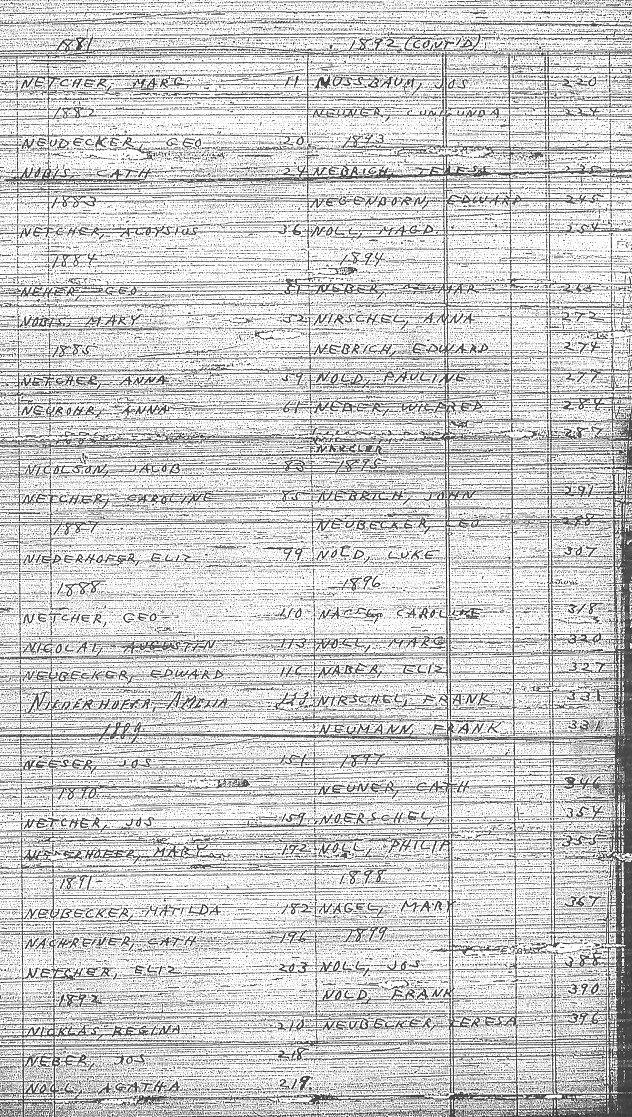 1881
NETCHER, MARG. 11
1882
NEUDECKER, GEO 20
NOBIS, CATH 24
1883
NETCHER, ALOYSIUS 36
1884
NEHER, GEO 51
NOBIS, MARY 52
1885
NETCHER, ANNA 59
NEUROHR, ANNA 61
NICOLSON, JACOB 83
NETCHER, CAROLINE 85
1887
NIEDERHOFER, ELIZ 99
1888
NETCHER, GEO 110
NICOLAI, AUGUSTIN 113
NEUBECKER, EDWARD 116
NIEDERHOFFR, AMELIA
1889
NEESER, JOS 151
1890
NETCHER, JOS 159
NIEDERHOFER, MARY 172
1891
NEUBECKER, MATILDA 182
NACHREINER, CATH 196
NETCHER, ELIZ 203
1892
NICKLAS, REGINA 210
NEBER, JOS 218
NOLL, AGATHA 219
1892 (CONT'D)
NUSSBAUM, JOS 220
NEUNER, CUNIGUNDA 224
1893
NEBRICH, TERESA 235
NEGENDORN, EDWARD 245
NOLL, MAGD. 254
1894
NEBER, 263
NIRSCHEL, ANNA 272
NEBRICH, EDWARD 274
NOLD, PAULINE 277
NEBER, WILFRED 284
287
1895
NEBRICH, JOHN 291
NEUBECKER, LEO 298
NOLD, LUKE 307
1896
NAGEL, CAROLINE 318
NOLL, MARG 320
NABER, ELIZ 327
NIRSCHEL, FRANK 331
NEUMANN, FRANK 331
1897
NEUNER, CATH 346
NOERSCHEL, 354
NOLL, PHILIP 355
1898
NAGEL, MARY 367
1899
NOLL, JOS 388
NOLD, FRANK 390
NEUBECKER, TERESA 396